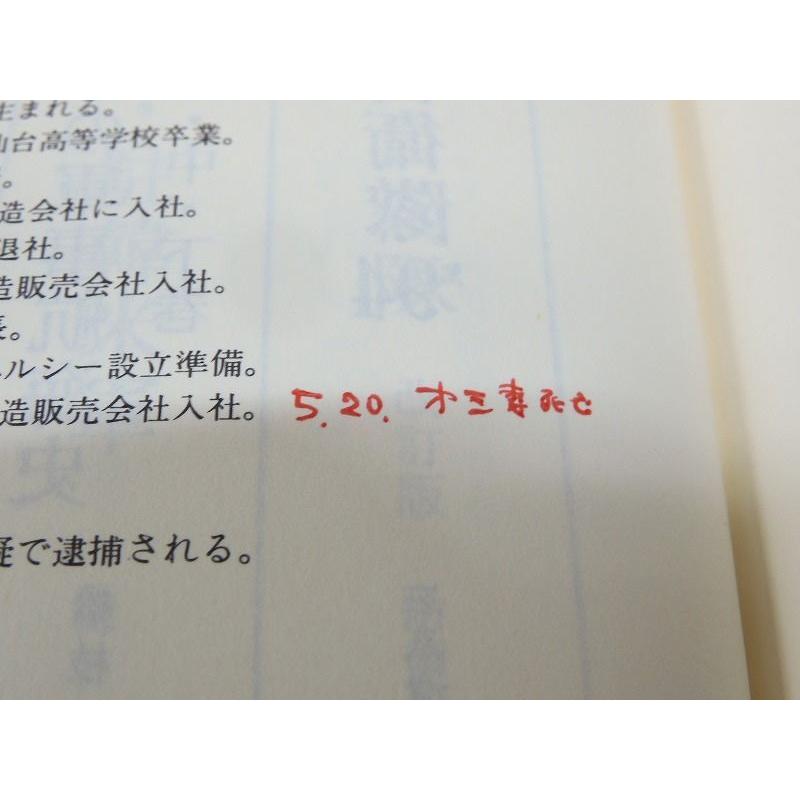 生まれる。
仙台高等学校卒業。
。
造会社に入社。
退社。
造販売会社入社。
長。
ルシー設立準備。
造販売会社入社。 5.20. 才三妻死亡
疑で逮捕される。